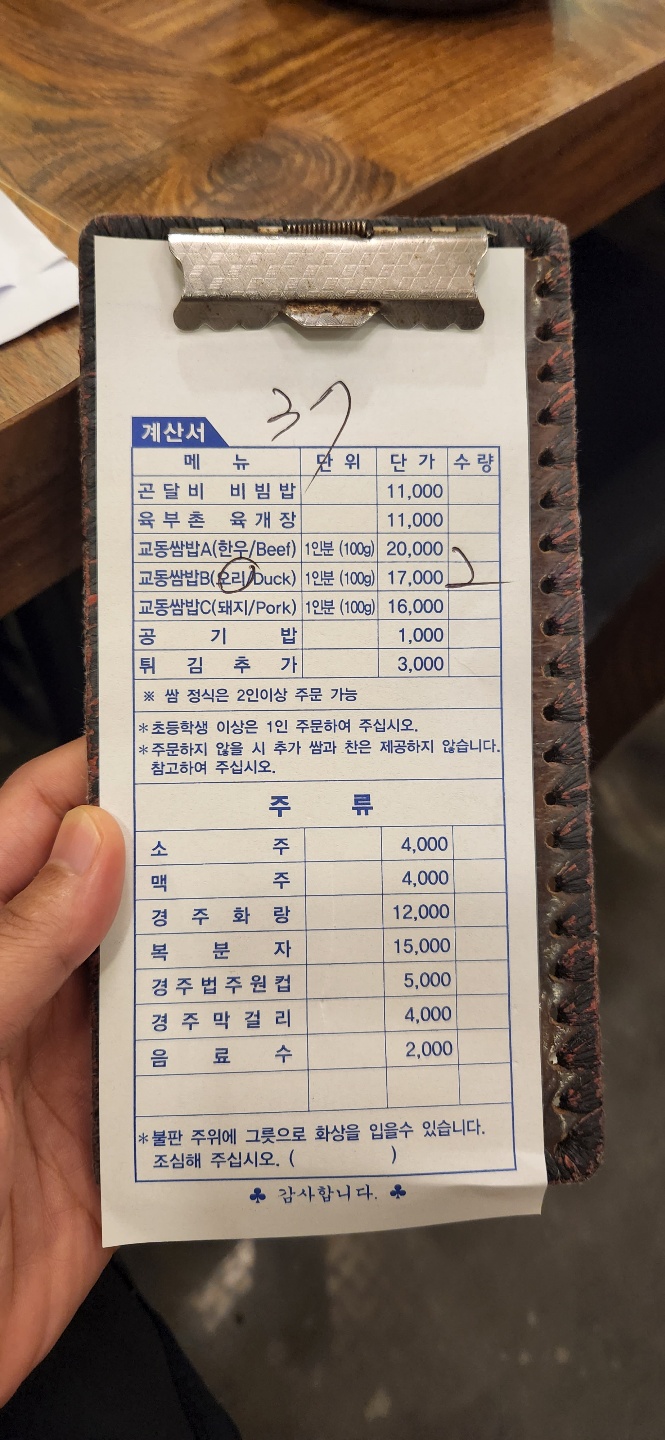 37
계산서
메 뉴 단 위 단 가 수 량
곤달비 비빔밥 11,000
육부촌 육개장 11,000
교동쌈밥A(한우/Beef) 1인분 (100g) 20,000
교동쌈밥B(오리/Duck) 1인분 (100g) 17,000 2
교동쌈밥C(돼지/Pork) 1인분 (100g) 16,000
공 기 밥 1,000
튀 김 추 가 3,000
※ 쌈 정식은 2인이상 주문 가능
*초등학생 이상은 1인 주문하여 주십시오.
*주문하지 않을 시 추가 쌈과 찬은 제공하지 않습니다.
참고하여 주십시오.
주 류
소 주 4,000
맥 주 4,000
경 주 화 랑 12,000
복 분 자 15,000
경주법주원컵 5,000
경 주 막 걸 리 4,000
음 료 수 2,000
*불판 주위에 그릇으로 화상을 입을수 있습니다.
조심해 주십시오. ( )
♣ 감사합니다. ♣